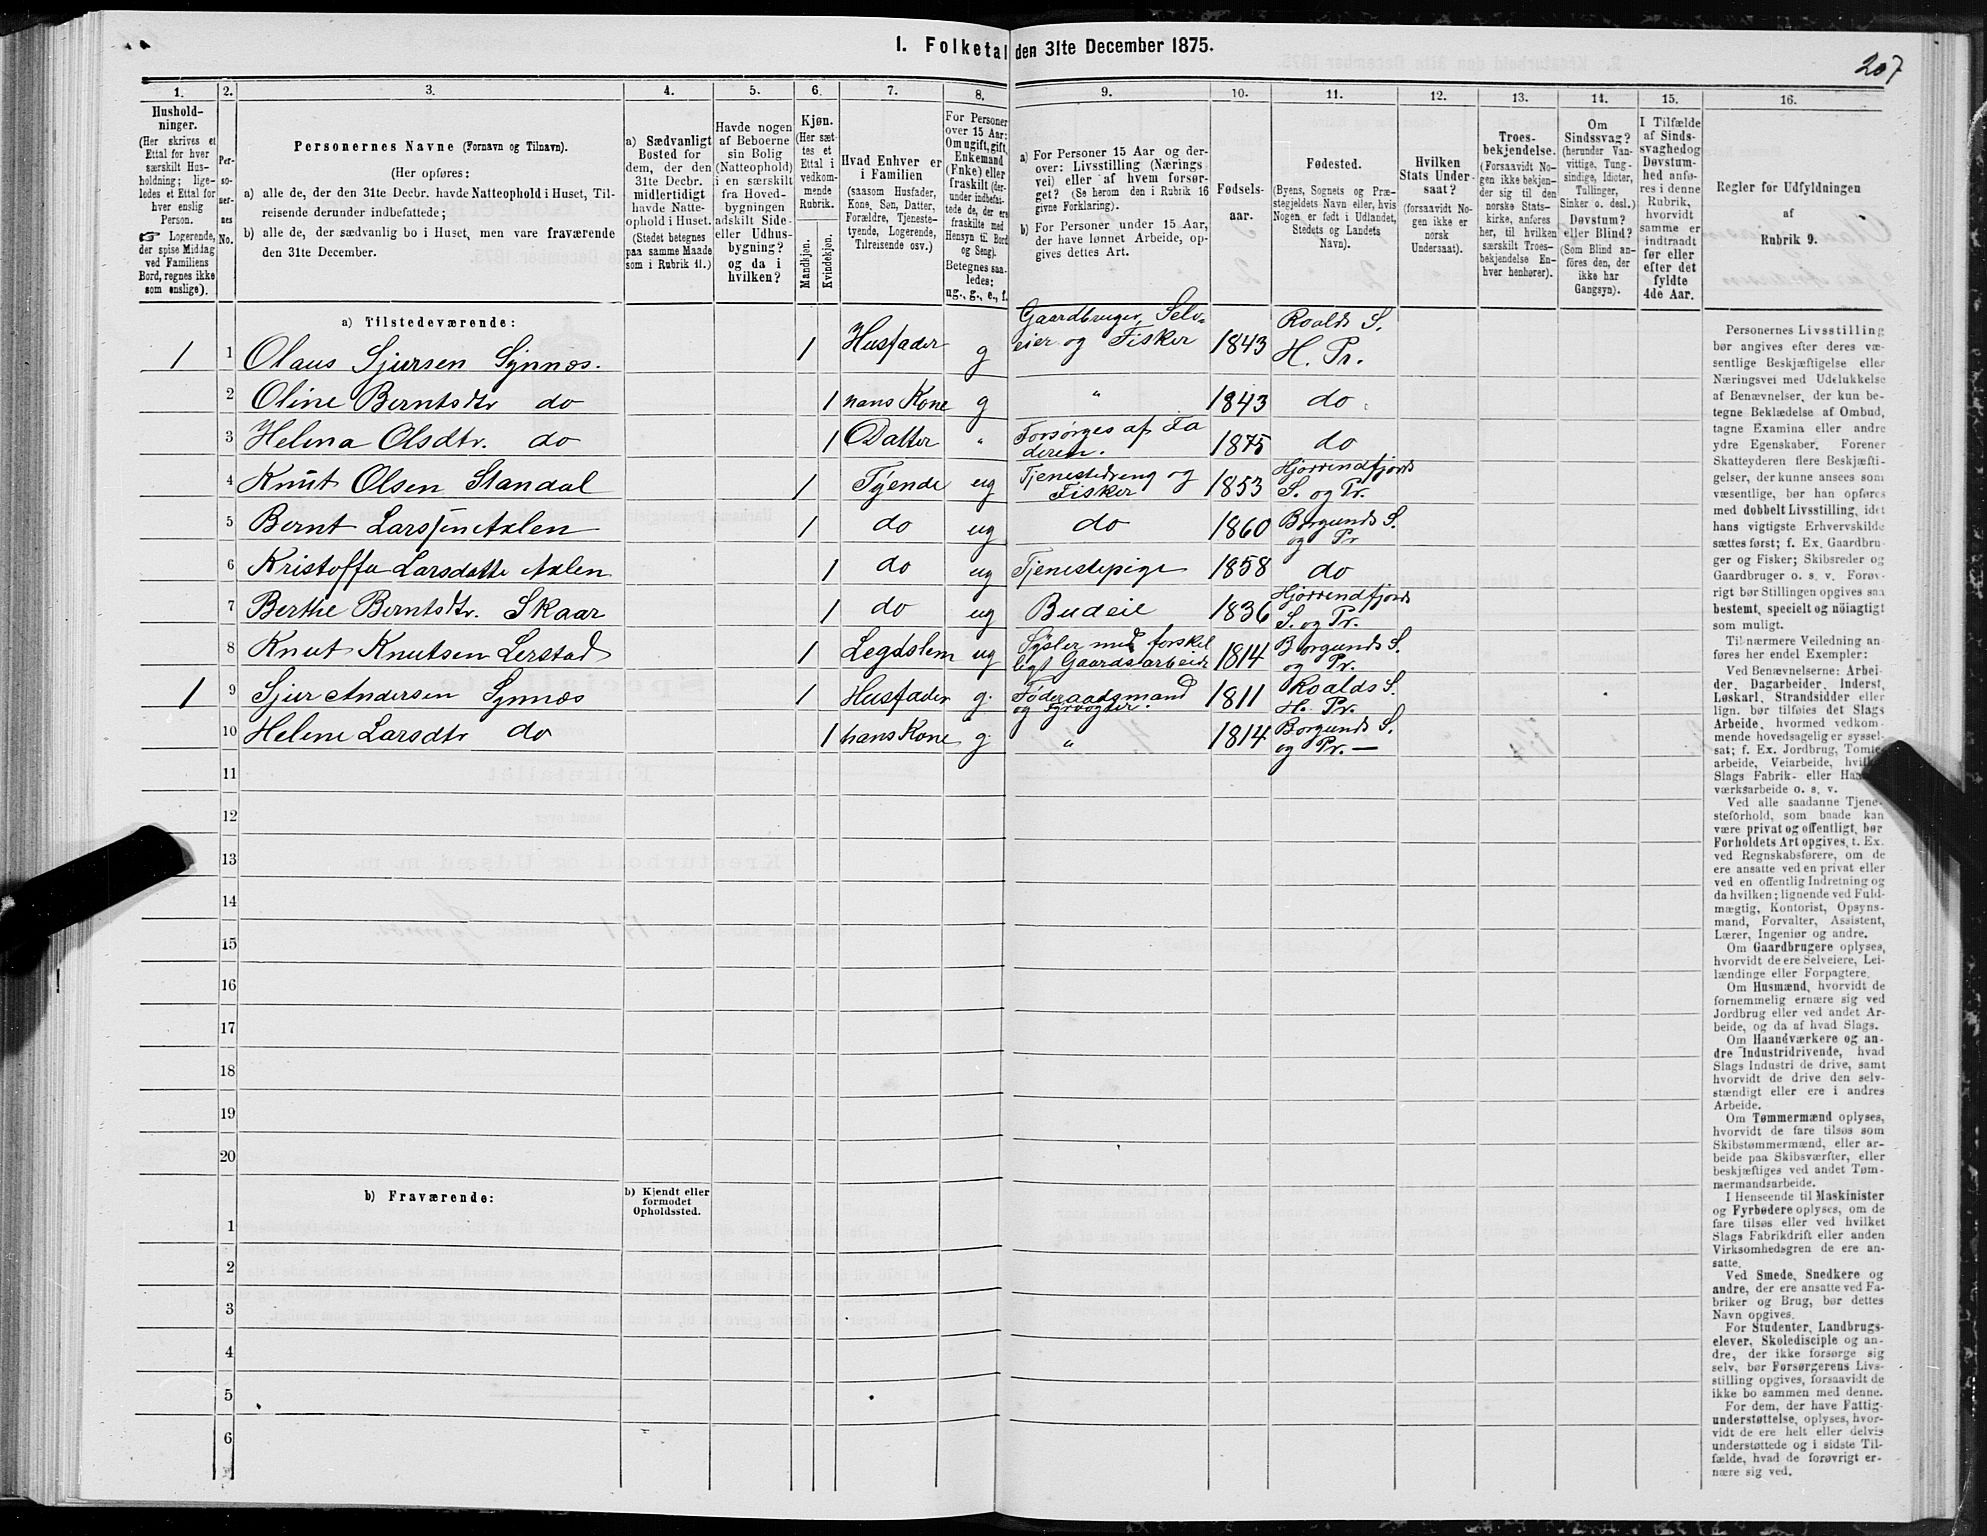 I. Folketal den 31te December 1875.
207
1.
2.
3.
4.
5.
6.
7.
8.
9.
10.
11.
12.
13.
14.
15.
16.
Hushold-
ninger.
(Her skrives et
Ettal for hver
særskilt Hus-
holdning; lige-
ledes et Ettal for
hver enslig
Person.
☞ Logerende,
der spise Middag
ved Familiens
Bord, regnes ikke
som enslige).
Per-
so-
ner-
nes
No.
Personernes Navne (Fornavn og Tilnavn).
(Her opføres:
a) alle de, der den 31te Decbr. havde Natteophold i Huset, Til-
reisende derunder indbefattede;
b) alle de, der sædvanlig bo i Huset, men vare fraværende
den 31te December.
a) Sædvanligt
Bosted for
dem, der den
31te Decbr.
midlertidigt
havde Natte-
ophold i Huset.
(Stedet betegnes
paa samme Maade
som i Rubrik 11.)
Havde nogen
af Beboerne
sin Bolig
(Natteophold)
i en særskilt
fra Hoved-
bygningen
adskilt Side-
eller Udhus-
bygning?
og da i
hvilken?
Kjøn.
(Her sæt-
tes et
Ettal i
vedkom-
mende
Rubrik.
Mandkjøn.
Kvindekjøn.
Hvad Enhver er
i Familien
(saasom Husfader,
Kone, Søn, Datter,
Forældre, Tjeneste-
tyende, Logerende,
Tilreisende osv.)
For Personer
over 15 Aar:
Om ugift, gift,
Enkemand
(Enke) eller
fraskilt (der-
under indbefat-
tede de, der ere
fraskilte med
Hensyn til Bord
og Seng).
Betegnes saa-
ledes:
ug., g., e., f.
a) For Personer 15 Aar og der-
over: Livsstilling (Nærings-
vei) eller af hvem forsør-
get? (Se herom den i Rubrik 16
givne Forklaring).
b) For Personer under 15 Aar,
der have lønnet Arbeide, op-
gives dettes Art.
Fødsels-
aar.
Fødested.
(Byens, Sognets og Præ-
stegjeldets Navn eller, hvis
Nogen er født i Udlandet,
Stedets og Landets
Navn).
Hvilken
Stats Under-
saat?
(forsaavidt No-
gen ikke er
norsk
Undersaat).
Troes-
bekjendelse.
(Forsaavidt No-
gen ikke bekjen-
der sig til den
norske Stats-
kirke, anføres
her, til hvilken
særskilt Troes-
bekjendelse En-
hver henhører).
Om
Sindssvag?
(herunder Van-
vittige, Tung-
sindige, Idioter,
Tullinger,
Sinker o. desl.)
Døvstum?
eller Blind?
(Som Blind an-
føres den, der
ikke har
Gangsyn).
I Tilfælde
af Sinds-
svaghed og
Døvstum-
hed anfø-
res i denne
Rubrik,
hvorvidt
samme er
indtraadt
før eller
efter det
fyldte
4de Aar.
Regler for Udfyldningen
af
Rubrik 9.
a) Tilstedeværende:
1 1 Olaus Sjursen Synnæs. 1 Husfader g Gaardbruger, Selv-
eier og Fisker 1843 Roalds S.
H. Pr.
2 Oline Berntsdtr do 1 hans Kone g " 1843 do
3 Helena Olsdtr. do 1 Datter " Forsørges af Fa
deren. 1875 do
4 Knut Olsen Standal 1 Tyende ug Tjenestedreng og
Fisker 1853 Hjørrendfjords
S. og Pr.
5 Bernt Larssen Axlen 1 do ug do 1860 Borgunds S.
og Pr
6 Kristoffa Larsdatte Axlen 1 do ug Tjenestepige 1858 do
7 Berthe Berntsdtr. Skaar 1 do ug Budeie 1836 Hjørrendfjords
S. og Pr.
8 Knut Knutsen Lerstad 1 Legdslem ug Sysler med forskel
ligt Gaardsarbeide 1814 Borgunds S.
og Pr.
1 9 Sjur Andersen Synnæs 1 Husfader g. Føderaadsmand
og 1811 Roalds S.
H. Pr.
10 Helene Larsdtr do 1 hans Kone g. " 1814 Borgunds S.
og Pr. —
11
12
13
14
15
16
17
18
19
20
b) Fraværende:
b) Kjendt eller
formodet
Opholdssted.
1
2
3
4
5
6
Personernes Livsstilling
bør angives efter deres væ-
sentlige Beskjæftigelse eller
Næringsvei med Udelukkelse
af Benævnelser, der kun be-
tegne Beklædelse af Ombud,
tagne Examina eller andre
ydre Egenskaber. Forener
Skatteyderen flere Beskjæfti-
gelser, der kunne ansees som
væsentlige, bør han opføres
med dobbelt Livsstilling, idet
hans vigtigste Erhvervskilde
sættes først; f. Ex. Gaardbru-
ger og Fisker; Skibsreder og
Gaardbruger o. s. v. Forøv-
rigt bør Stillingen opgives saa
bestemt, specielt og nöiagtigt
som muligt.
Til nærmere Veiledning an-
føres her endel Exempler:
Ved Benævnelserne: Arbei-
der, Dagarbeider, Inderst,
Løskarl, Strandsidder eller
lign. bør tilføies det Slags
Arbeide, hvormed vedkom-
mende hovedsagelig er syssel-
sat; f. Ex. Jordbrug, Tomte-
arbeide, Veiarbeide, hvilket
Slags Fabrik- eller Haand-
værksarbeide o. s. v.
Ved alle saadanne Tjene-
steforhold, som baade kan
være privat og offentligt, bør
Forholdets Art opgives, t. Ex.
ved Regnskabsførere, om de
ere ansatte ved en privat eller
ved en offentlig Indretning og
da hvilken; lignende ved Fuld-
mægtig, Kontorist, Opsyns-
mand, Forvalter, Assistent,
Lærer, Ingeniør og andre.
Om Gaardbrugere oplyses,
hvorvidt de ere Selveiere, Lei-
lændinge eller Forpagtere.
Om Husmænd, hvorvidt de
fornemmelig ernære sig ved
Jordbrug eller ved andet Ar-
beide, og da af hvad Slags.
Om Haandværkere og an-
dre Industridrivende, hvad
Slags Industri de drive, samt
hvorvidt de drive den selv-
stændigt eller ere i andres
Arbeide.
Om Tømmermænd oplyses,
hvorvidt de fare tilsøs som
Skibstømmermænd, eller ar-
beide paa Skibsværfter, eller
beskjæftiges ved andet Tøm-
mermandsarbeide.
I Henseende til Maskinister
og Fyrbødere oplyses, om de
fare tilsøs eller ved hvilket
Slags Fabrikdrift eller anden
Virksomhedsgren de ere an-
satte.
Ved Smede, Snedkere og
andre, der ere ansatte ved Fa-
briker og Brug, bør dettes
Navn opgives.
For Studenter, Landbrugs-
elever, Skoledisciple og an-
dre, der ikke forsørge sig
selv, bør Forsørgerens Livs-
stilling opgives, forsaavidt de
ikke bo sammen med denne.
For dem, der have Fattig-
understøttelse, oplyses, hvor-
vidt de ere helt eller delvis
understøttede og i sidste Til-
fælde, hvad de forøvrigt er-
nære sig ved.